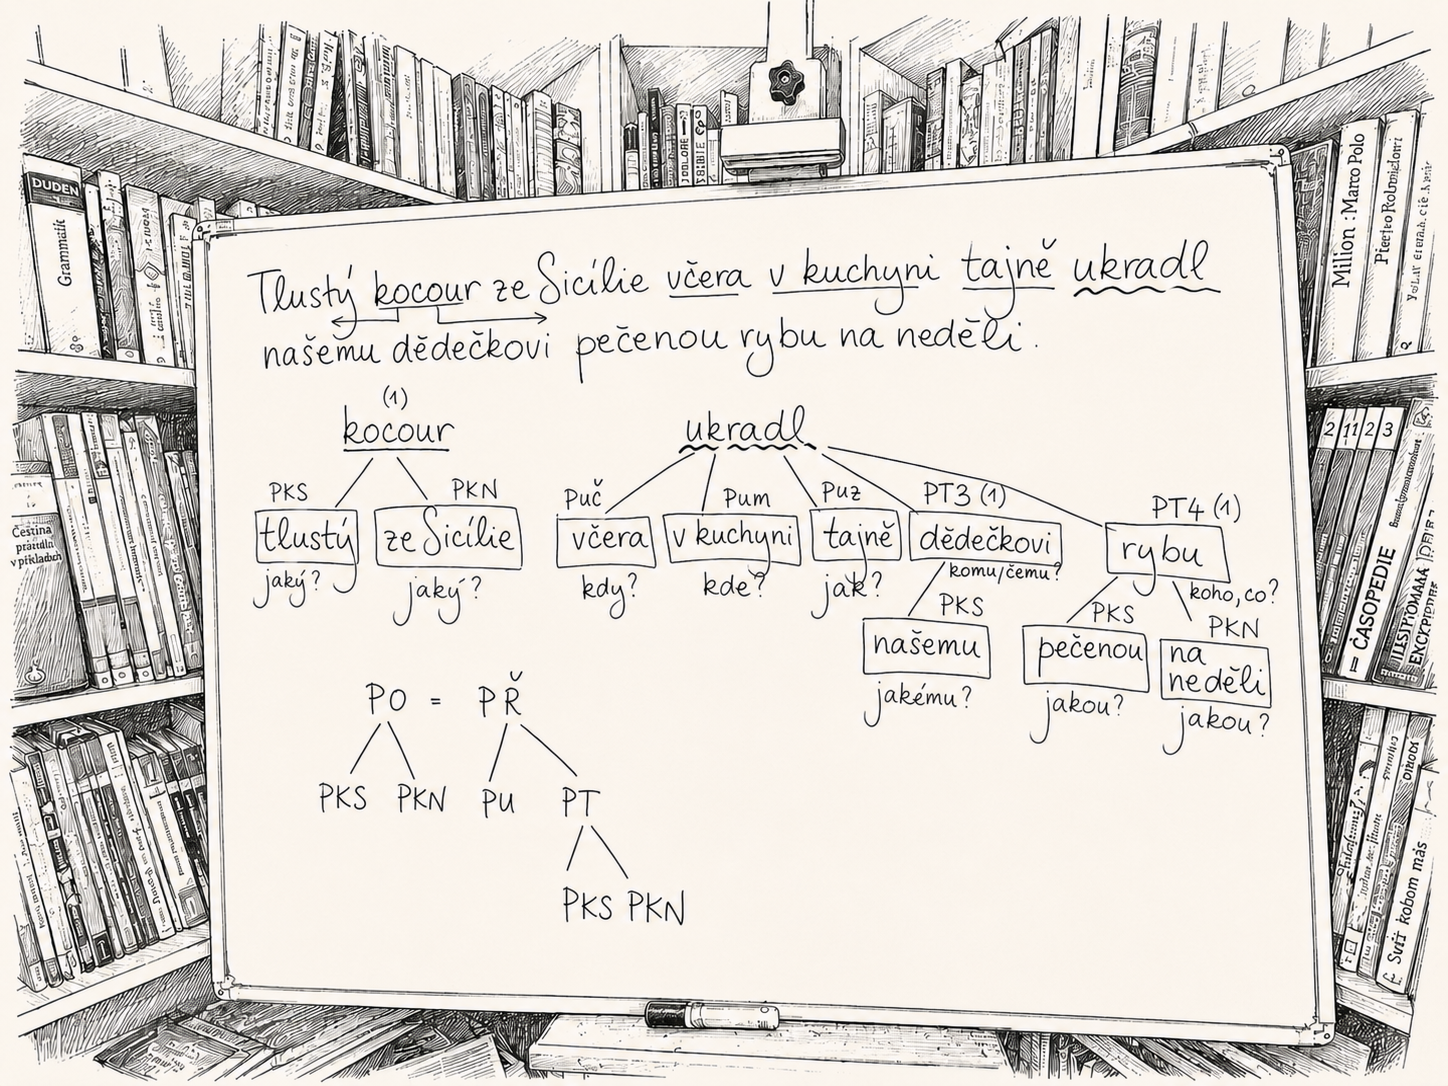 DUDEN
Grammatik
Milion : Marco Polo
Tlustý kocour ze Sicílie včera v kuchyni tajně ukradl
našemu dědečkovi pečenou rybu na neděli.
(1)
kocour
ukradl
PKS
PKN
Puč
Pum
Puz
PT3 (1)
PT4 (1)
tlustý
ze Sicílie
včera
v kuchyni
tajně
dědečkovi
rybu
jaký?
jaký?
kdy?
kde?
jak?
komu/čemu?
koho, co?
PKS
PKS
PKN
našemu
pečenou
na
neděli
jakému?
jakou?
jakou?
PO = PŘ
PKS PKN PU PT
PKS PKN
Čeština
v příkladech
2 11 2 3
ČASOPEDIE